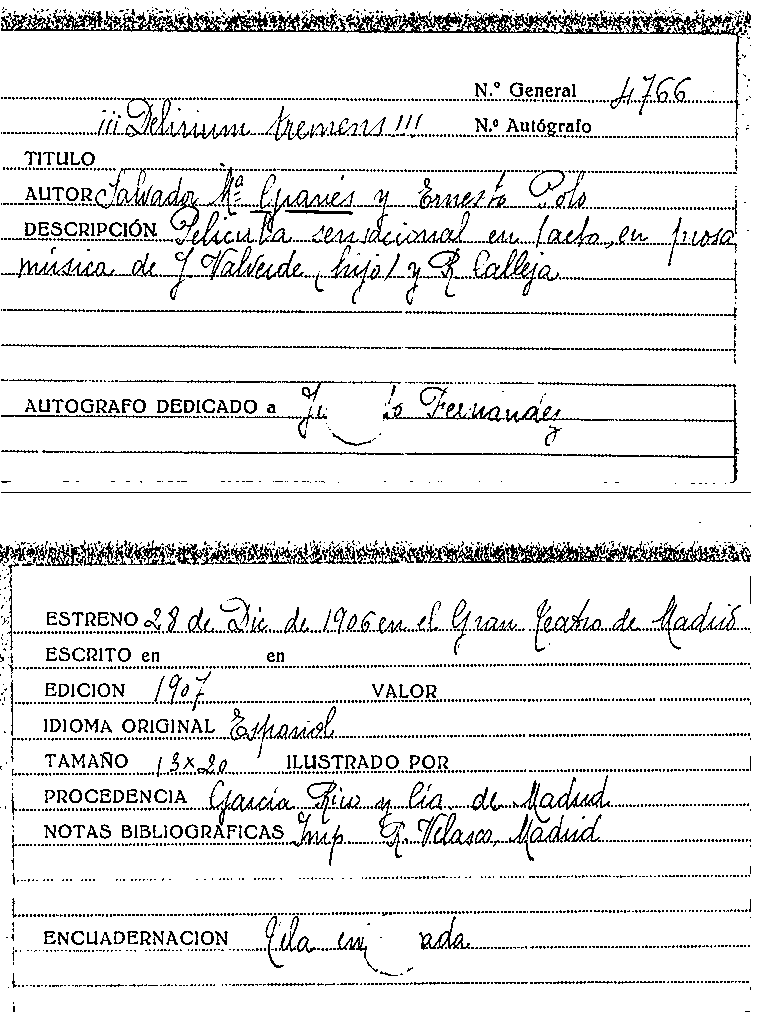 N.º General 4766
¡¡¡Delirium tremens!!! N.º Autógrafo
TITULO
AUTOR Salvador Mª Granés y Ernesto Polo
DESCRIPCIÓN Pelicula sensacional en 1 acto, en prosa
música de J Valverde (hijo) y R Calleja
AUTOGRAFO DEDICADO a Fernandez
ESTRENO 28 de Dic de 1906 en el Gran Teatro de Madrid
ESCRITO en en
EDICION 1907 VALOR
IDIOMA ORIGINAL Español
TAMAÑO 13x20 ILUSTRADO POR
PROCEDENCIA García Rico y Cía. de Madrid
NOTAS BIBLIOGRAFICAS Imp R. Velasco, Madrid
ENCUADERNACION Tela